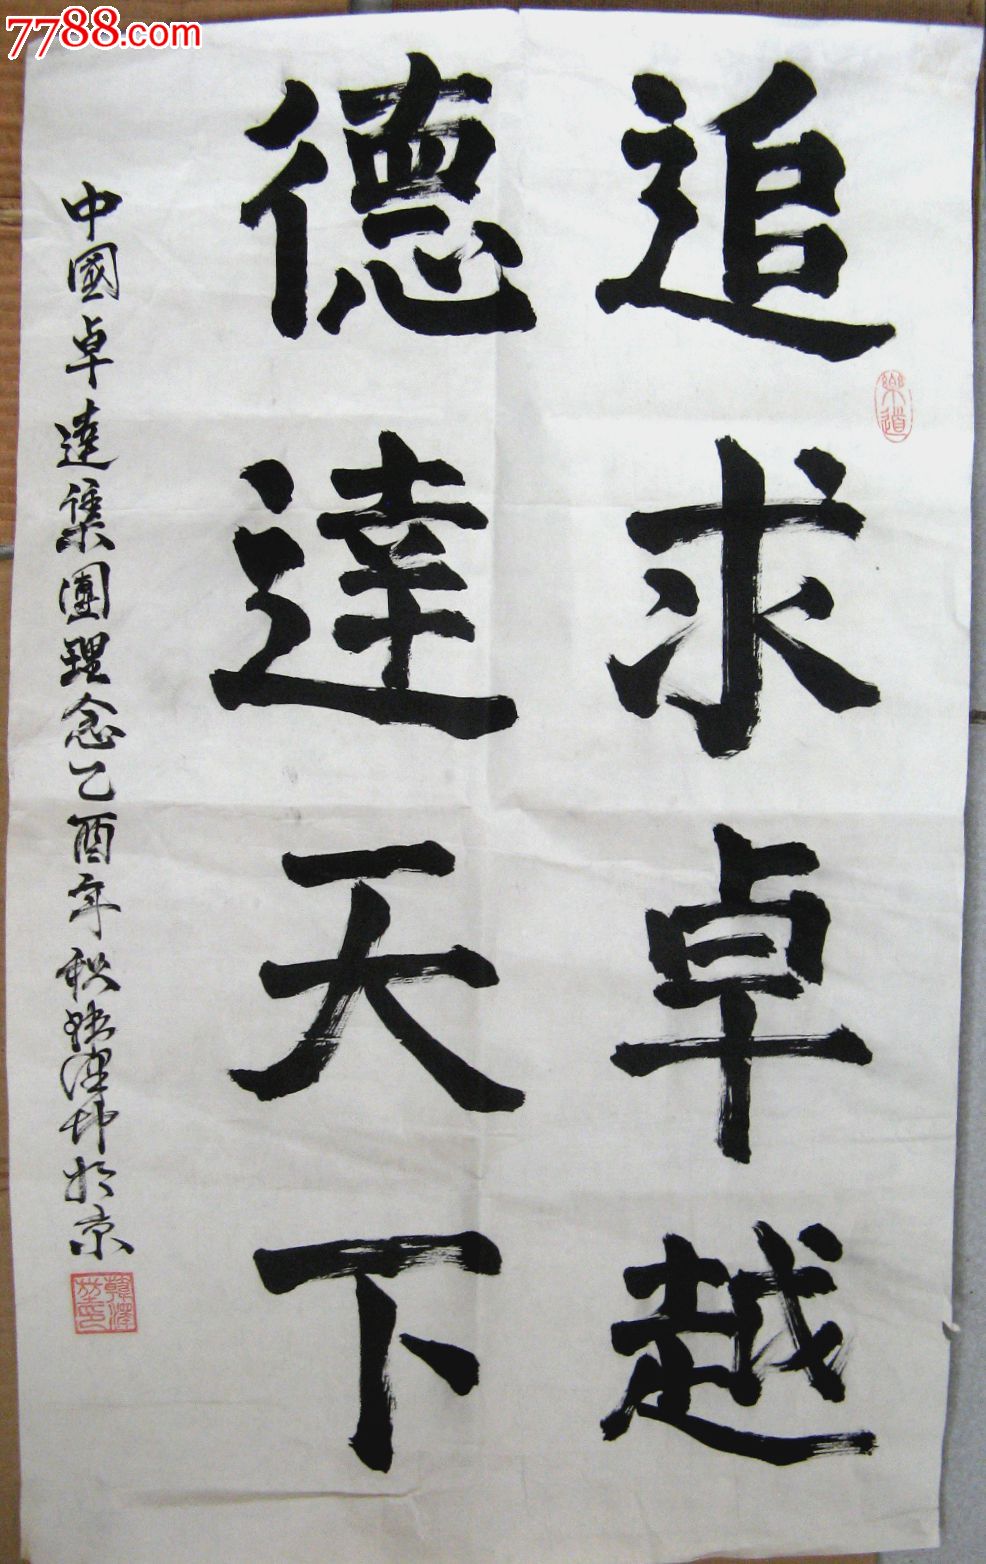 7788.com
追求卓越
樂道
德達天下
中國卓達集團理念乙酉年秋韓澤坤於京
韓澤